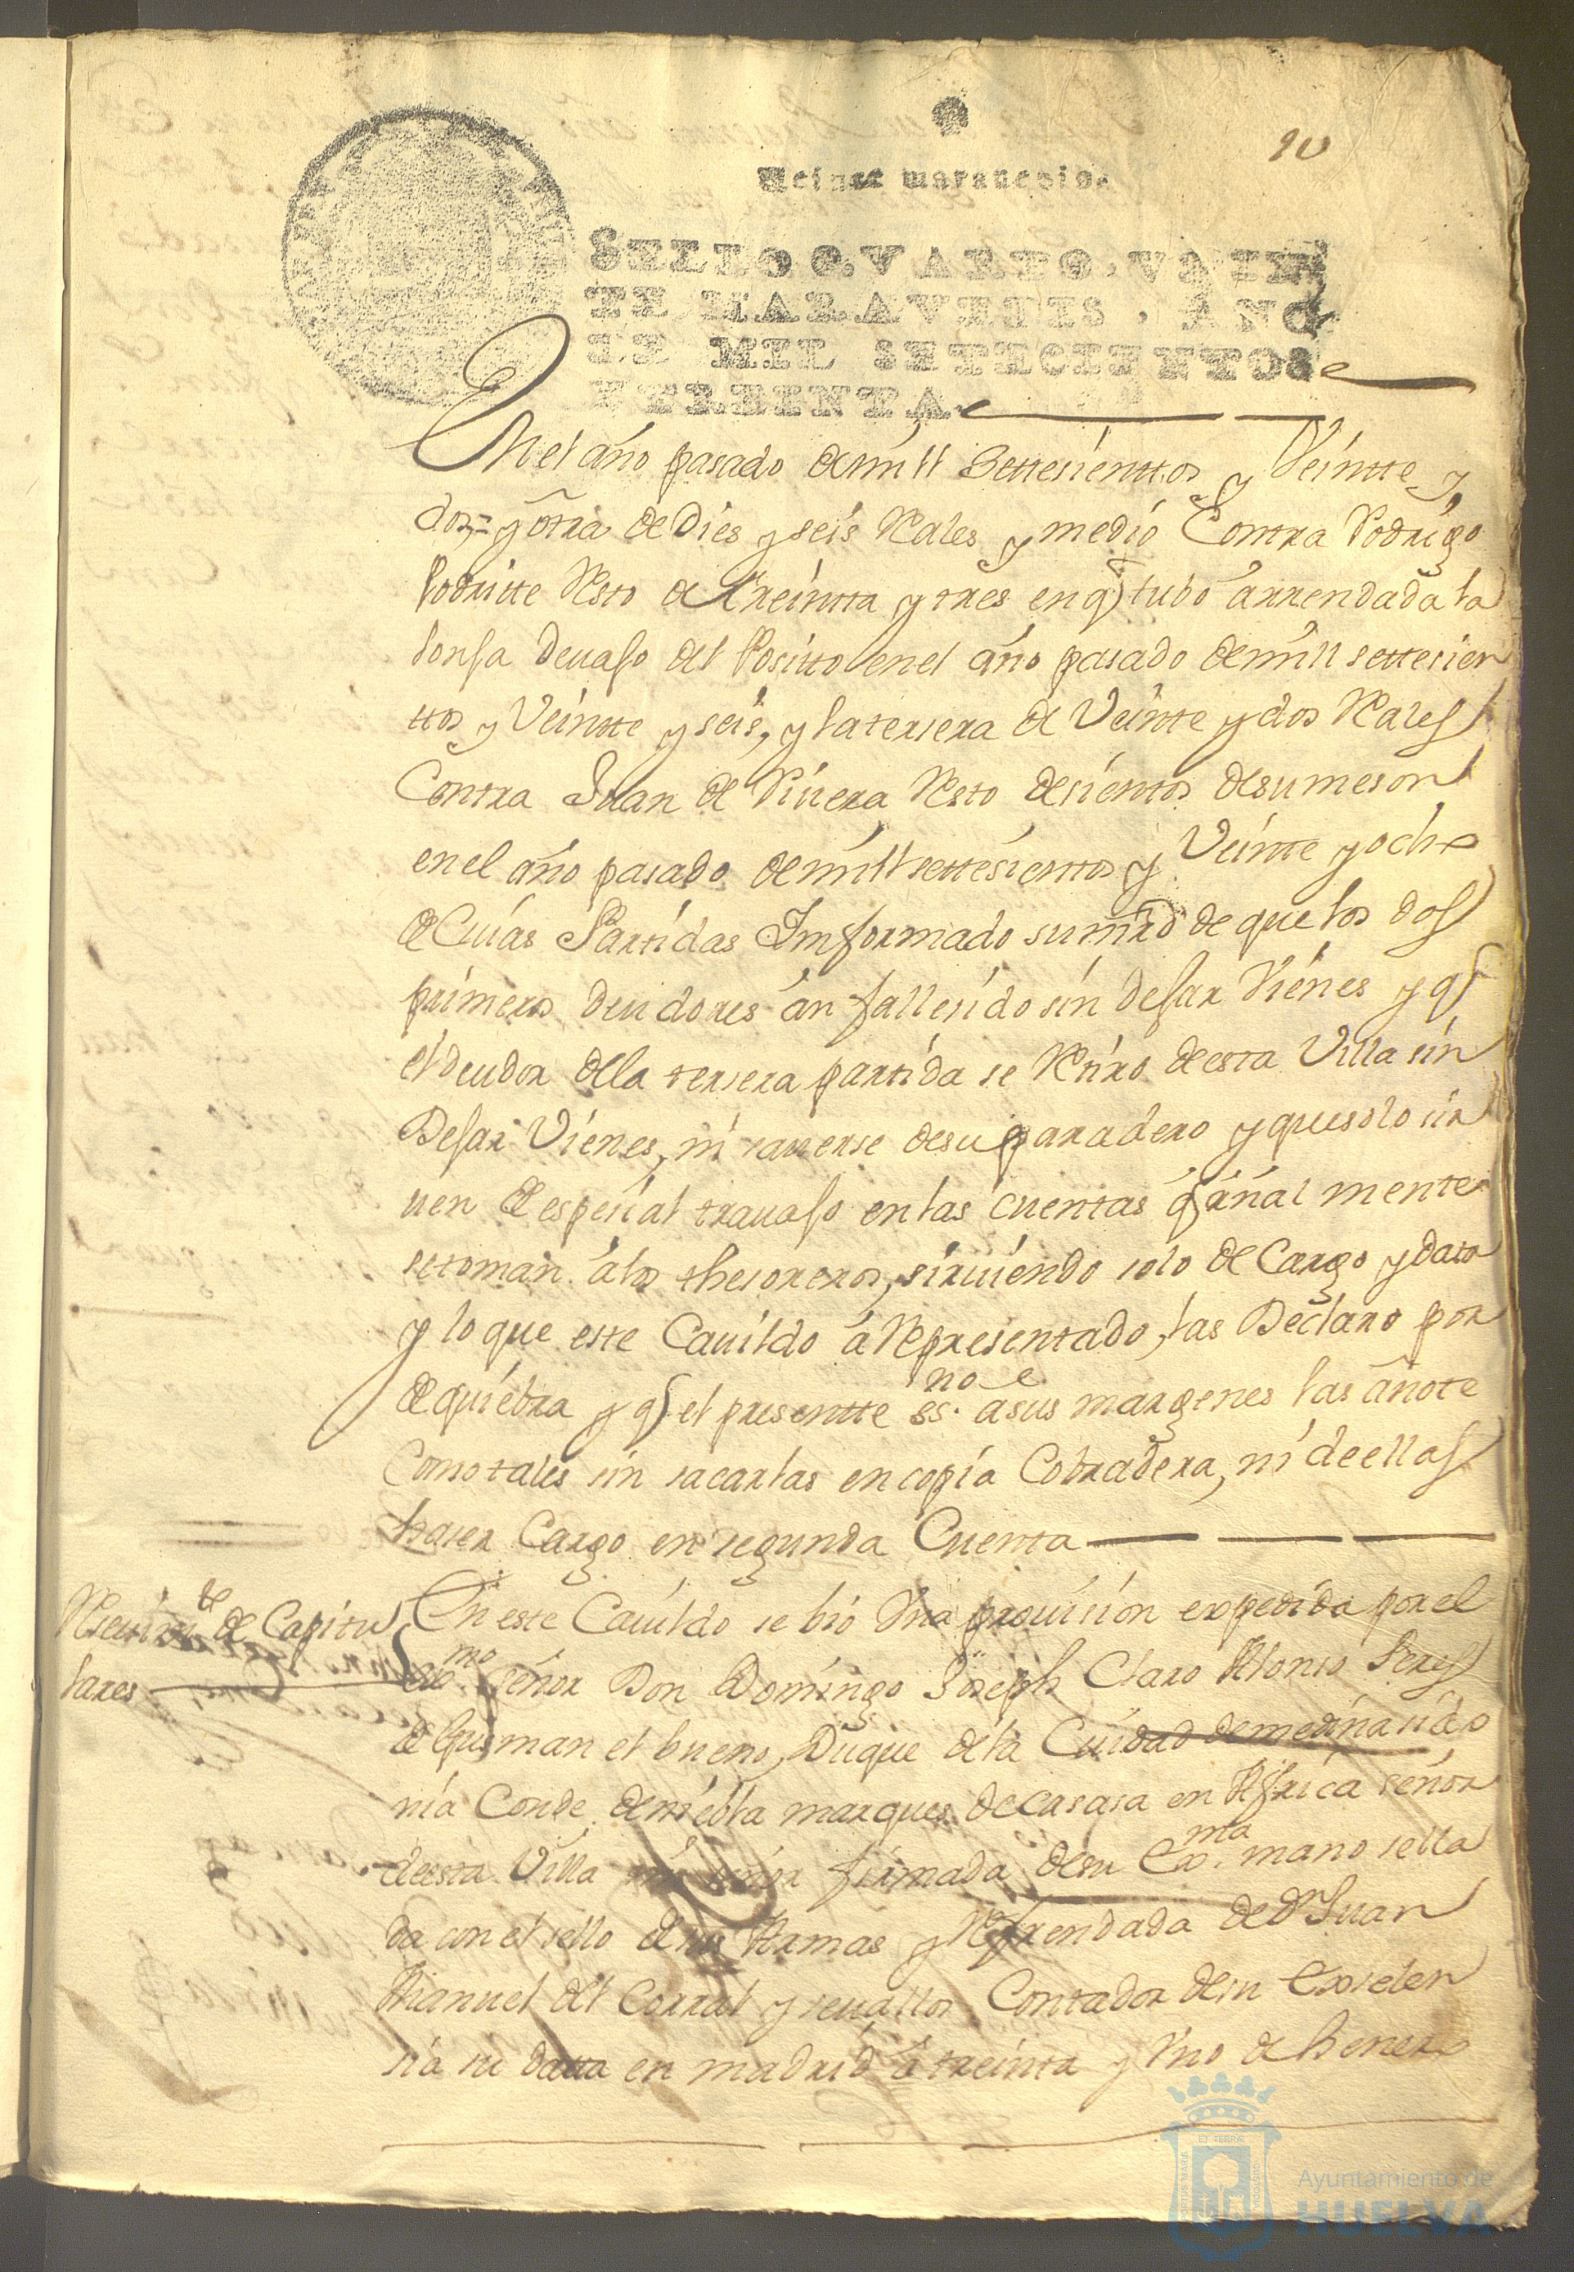 10
Veinte maravedis.
SELLO QVARTO, VEIN
TE MARAVEDIS, AÑO
DE MIL SETECIENTOS
Y TREINTA.
En el año pasado de mill settesienttos y Veintte y
dos, = y otra de Dies y seis Rales y medio Contra Rodrigo
resto de treintta y tres en q tubo arrendada la
lonja devajo del Positto en el año pasado de mill settesien
ttos y Veintte y seis, y la tersera de Veinte y dos Rales
Contra Juan de Rivera Resto de sientos de su meson
en el año pasado de mill settesientos y Veinte y ocho
de Cuias Partidas Imformado su mrd de que los dos
primeros deudores an fallesido sin dejar Vienes y q
el deudor de la tersera partida se Retiro de esta Villa sin
Dejar Vienes, ni saverse de su paradero y que solo sir
uen de espesial travajo en las cuentas q anal mente
se toman a los thesoreros, sirviendo solo de Cargo y data
y lo que este Cavildo a Representado, las Declaro por
de quiebra y q el presentte essno a sus margenes las anote
Como tales sin sacarlas en copia Cobradera, ni de ellas
haser Cargo en segunda Cuenta
Resevimto de Capitu
lares
En este Cavildo se bio Vna provision expedida por el
exmo señor Don Domingo Joseph Claro Alonso Peres
de Gusman el bueno, Duque de la Ciudad de medina sido
nia Conde de niebla marques de casasa en Africa señor
de esta Villa mi señor firmada de su Exma mano sella
da con el sello de sus Armas y Refrendada de Dn Juan
Manuel del Corral y sevallos Contador de su Exselen
sia su datta en madrid a treinta y Vno de henero
Ayuntamiento de
HUELVA